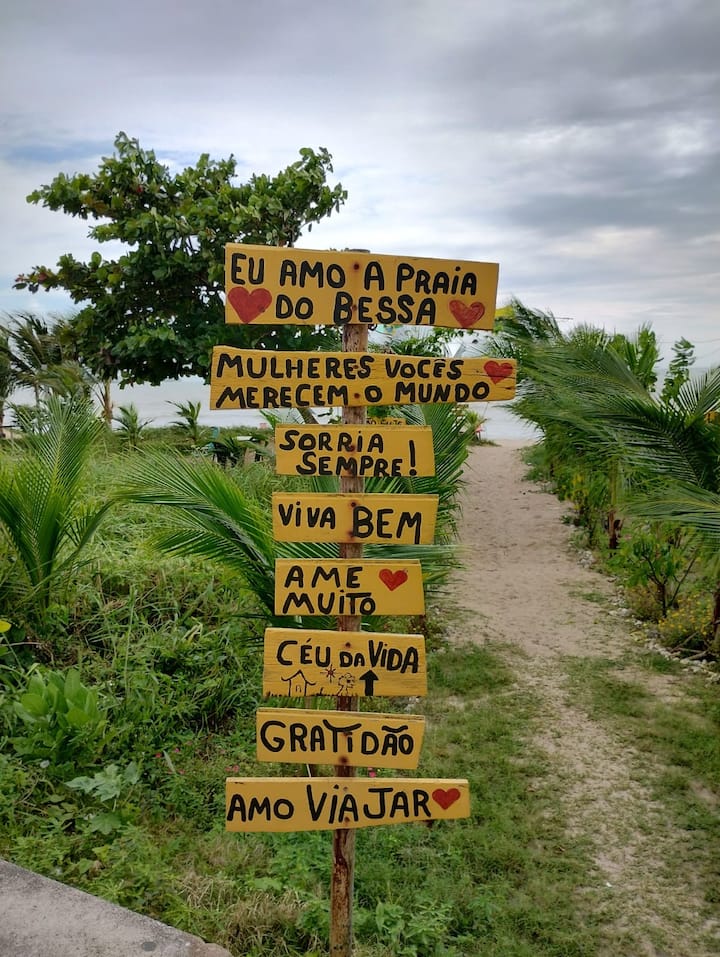 EU AMO A PRAIA
DO BESSA
MULHERES VOCÊS
MERECEM O MUNDO
SORRIA
SEMPRE!
VIVA BEM
AME
MUITO
CÉU DA VIDA
GRATIDÃO
AMO VIAJAR